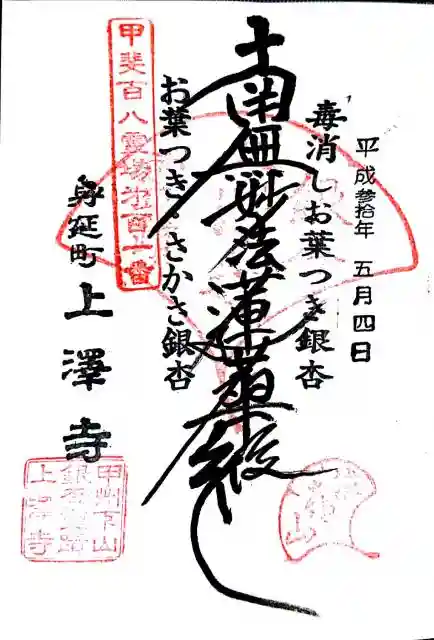 平成参拾年 五月四日
毒消しお葉つき銀杏
南無妙法蓮華経
お葉つき・さかさ銀杏
甲斐百八霊場
番
身延町 上澤寺
甲州下山
上澤寺